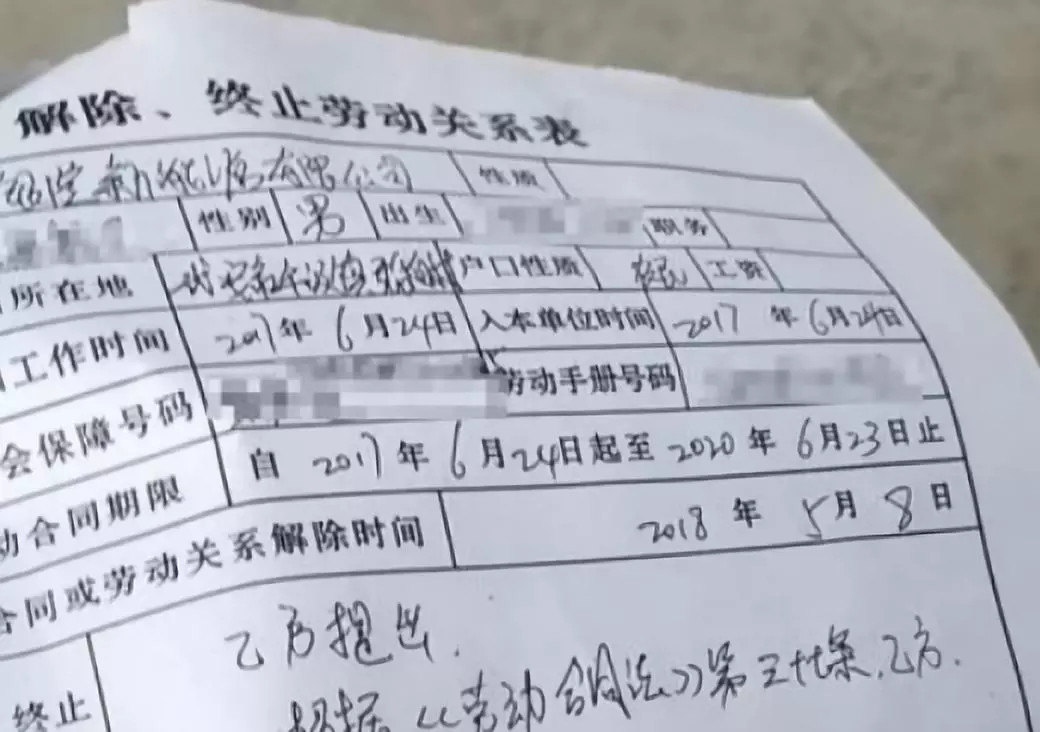 解除、终止劳动关系表
有限公司 性质
性别 男 出生 职务
所在地 户口性质 农民 工资
工作时间 2017年6月24日 入本单位时间 2017年6月24日
会保障号码 劳动手册号码
动合同期限 自2017年6月24日起至2020年6月23日止
合同或劳动关系解除时间 2018年5月8日
乙方提出.
终止 根据《劳动合同法》第三十七条,乙方.